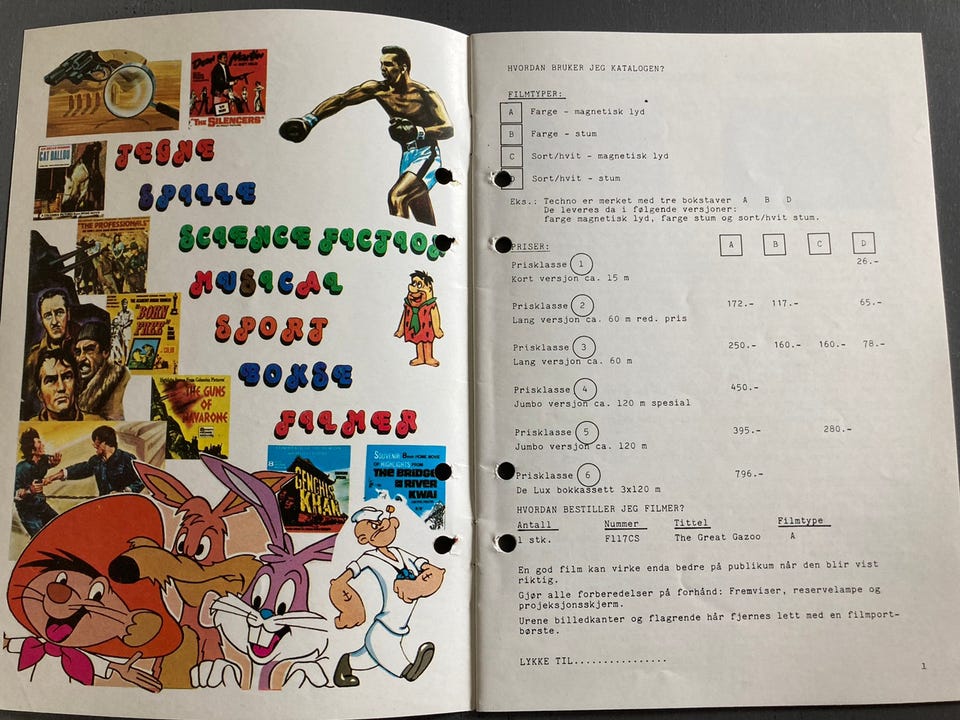 Dean Martin
"THE SILENCERS"
CAT BALLOU
TEGNE
SPILLE
THE PROFESSIONALS
SCIENCE FICTION
MUSICAL
"BORN
FREE"
SPORT
BOKSE
THE GUNS
OF
NAVARONE
FILMER
GENGHIS
KHAN
SOUVENIR 8mm HOME MOVIE
OF HIGHLIGHTS FROM
THE BRIDGE
ON THE
RIVER
KWAI
HVORDAN BRUKER JEG KATALOGEN?
FILMTYPER:
A Farge - magnetisk lyd
B Farge - stum
C Sort/hvit - magnetisk lyd
D Sort/hvit - stum
Eks.: Techno er merket med tre bokstaver A B D
De leveres da i følgende versjoner:
farge magnetisk lyd, farge stum og sort/hvit stum.
PRISER: A B C D
Prisklasse 1 26.-
Kort versjon ca. 15 m
Prisklasse 2 172.- 117.- 65.-
Lang versjon ca. 60 m red. pris
Prisklasse 3 250.- 160.- 160.- 78.-
Lang versjon ca. 60 m
Prisklasse 4 450.-
Jumbo versjon ca. 120 m spesial
Prisklasse 5 395.- 280.-
Jumbo versjon ca. 120 m
Prisklasse 6 796.-
De Lux bokkassett 3x120 m
HVORDAN BESTILLER JEG FILMER?
Antall Nummer Tittel Filmtype
1 stk. F117CS The Great Gazoo A
En god film kan virke enda bedre på publikum når den blir vist
riktig.
Gjør alle forberedelser på forhånd: Fremviser, reservelampe og
projeksjonsskjerm.
Urene billedkanter og flagrende hår fjernes lett med en filmport-
børste.
LYKKE TIL................
1